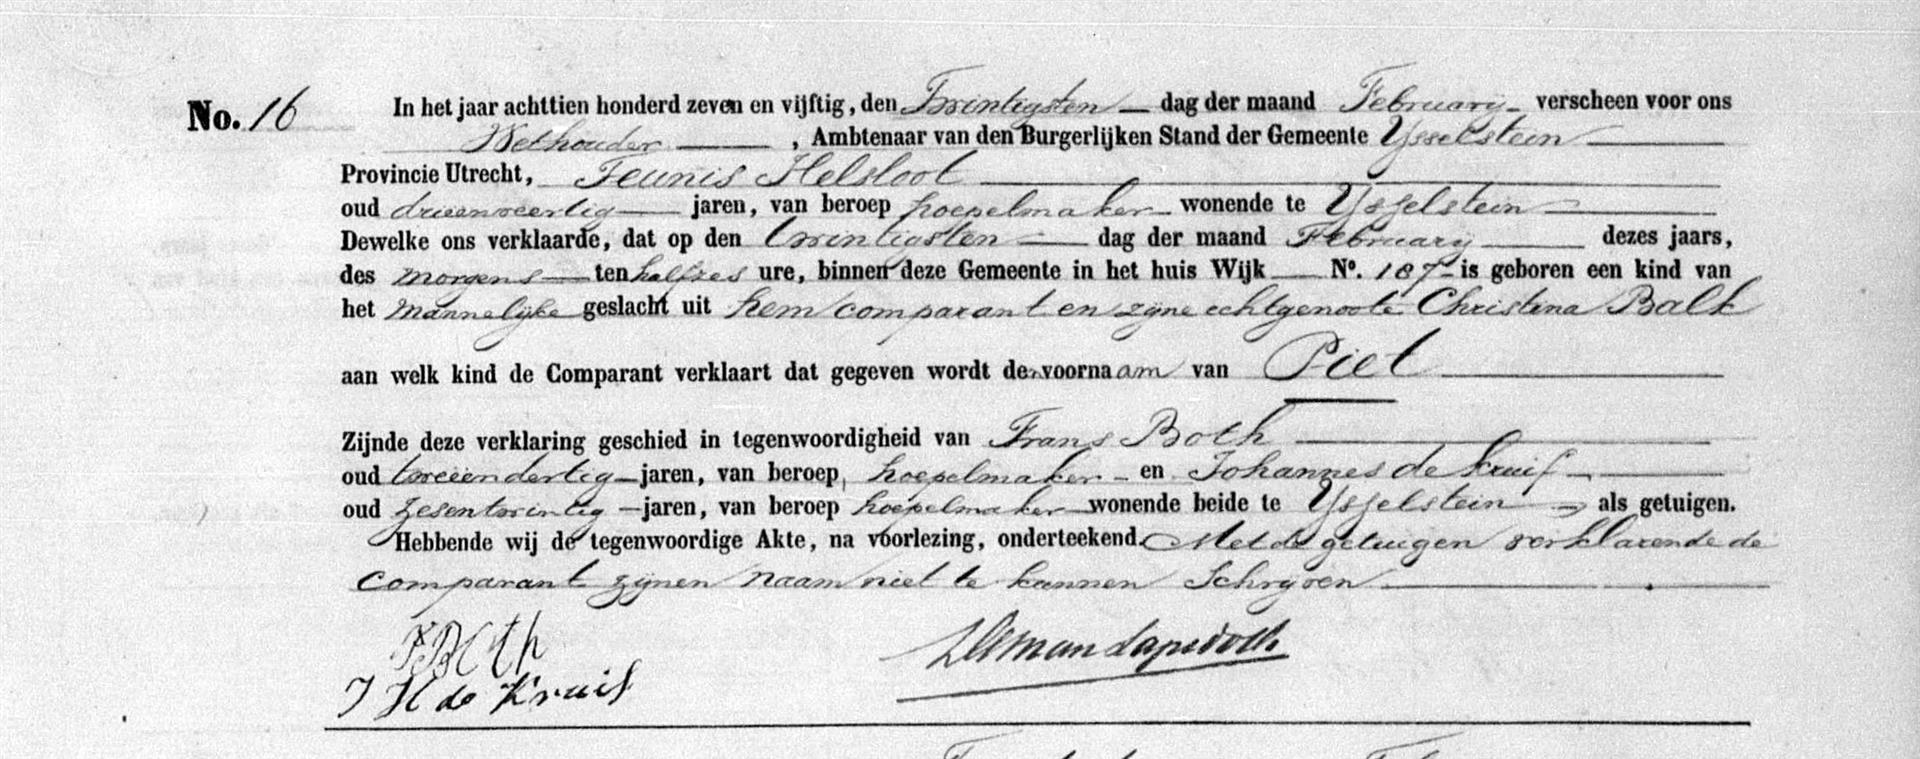 No. 16 In het jaar achttien honderd zeven en vijftig, den Twintigsten dag der maand February verscheen voor ons
Wethouder, Ambtenaar van den Burgerlijken Stand der Gemeente Ysselstein
Provincie Utrecht, Teunis Helsloot
oud drieenveertig jaren, van beroep hoepelmaker wonende te Ysselstein
Dewelke ons verklaarde, dat op den twintigsten dag der maand February dezes jaars,
des morgens ten halfzes ure, binnen deze Gemeente in het huis Wijk No. 187 is geboren een kind van
het mannelijke geslacht uit hem comparant en zijne echtgenoote Christina Balk
aan welk kind de Comparant verklaart dat gegeven wordt den voornaam van Piet
Zijnde deze verklaring geschied in tegenwoordigheid van Frans Both
oud tweeendertig jaren, van beroep hoepelmaker en Johannes de Kruif
oud zesentwintig jaren, van beroep hoepelmaker wonende beide te Ysselstein als getuigen.
Hebbende wij de tegenwoordige Akte, na voorlezing, onderteekend Met de getuigen verklarende de
comparant zijnen naam niet te kunnen Schryven
F Both
J H de Kruif